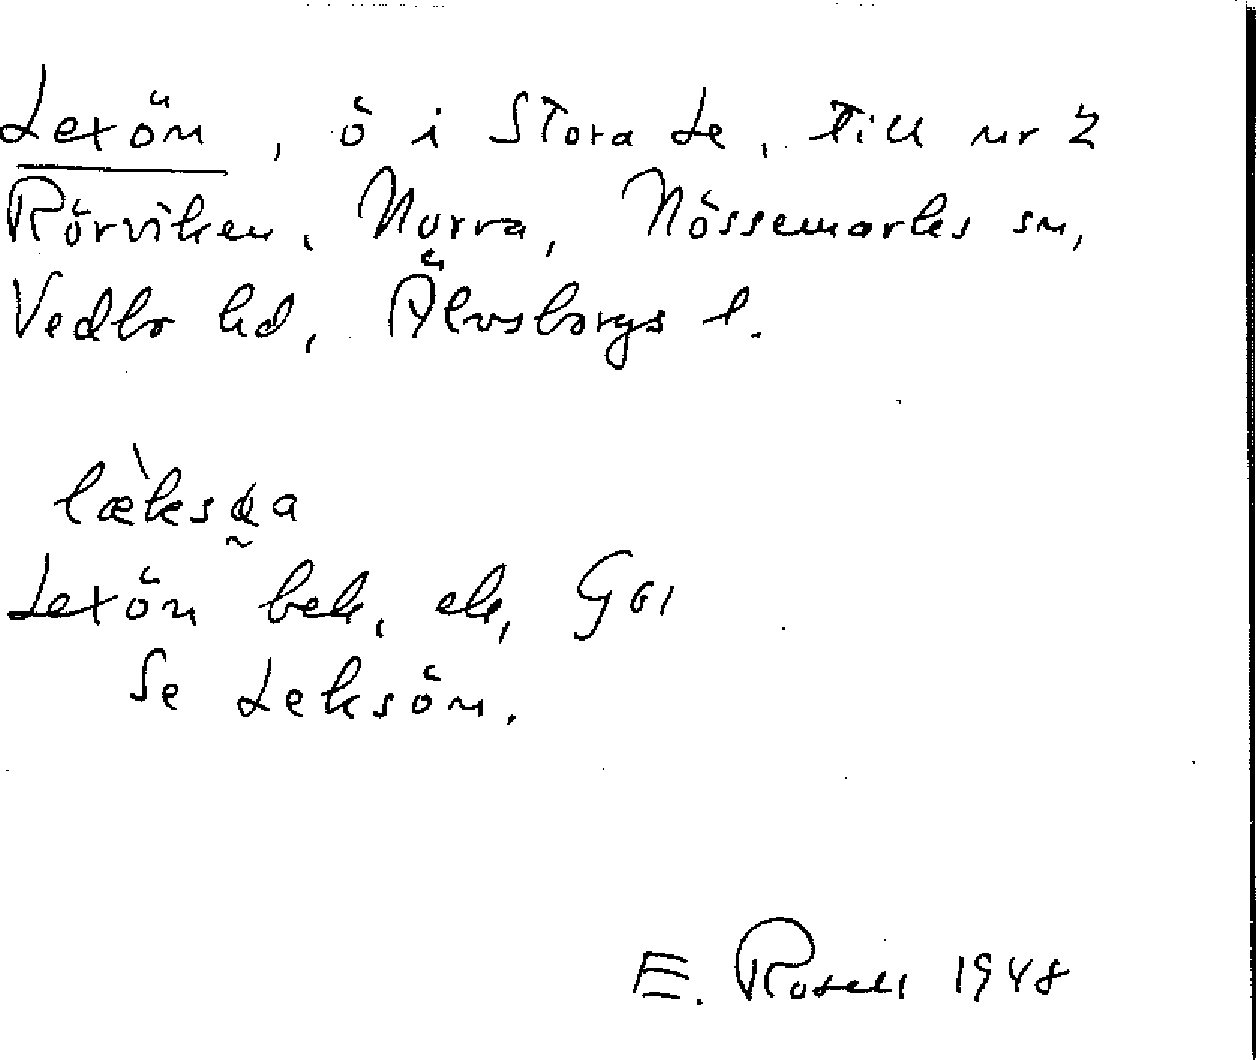 Lexön, ö i Stora Le, till nr 2
Rörviken, Norra, Nössemarks sn,
Vedbo hd, Älvsborgs l.
Lexön bek, ek,
Se Leksön.
E. Rosell 1948